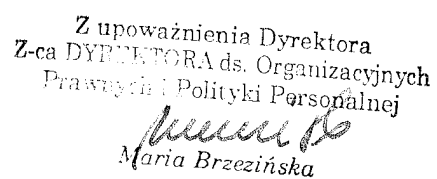 Z upoważnienia Dyrektora
Z-ca DYREKTORA ds. Organizacyjnych
Prawnych i Polityki Personalnej
Maria Brzezińska